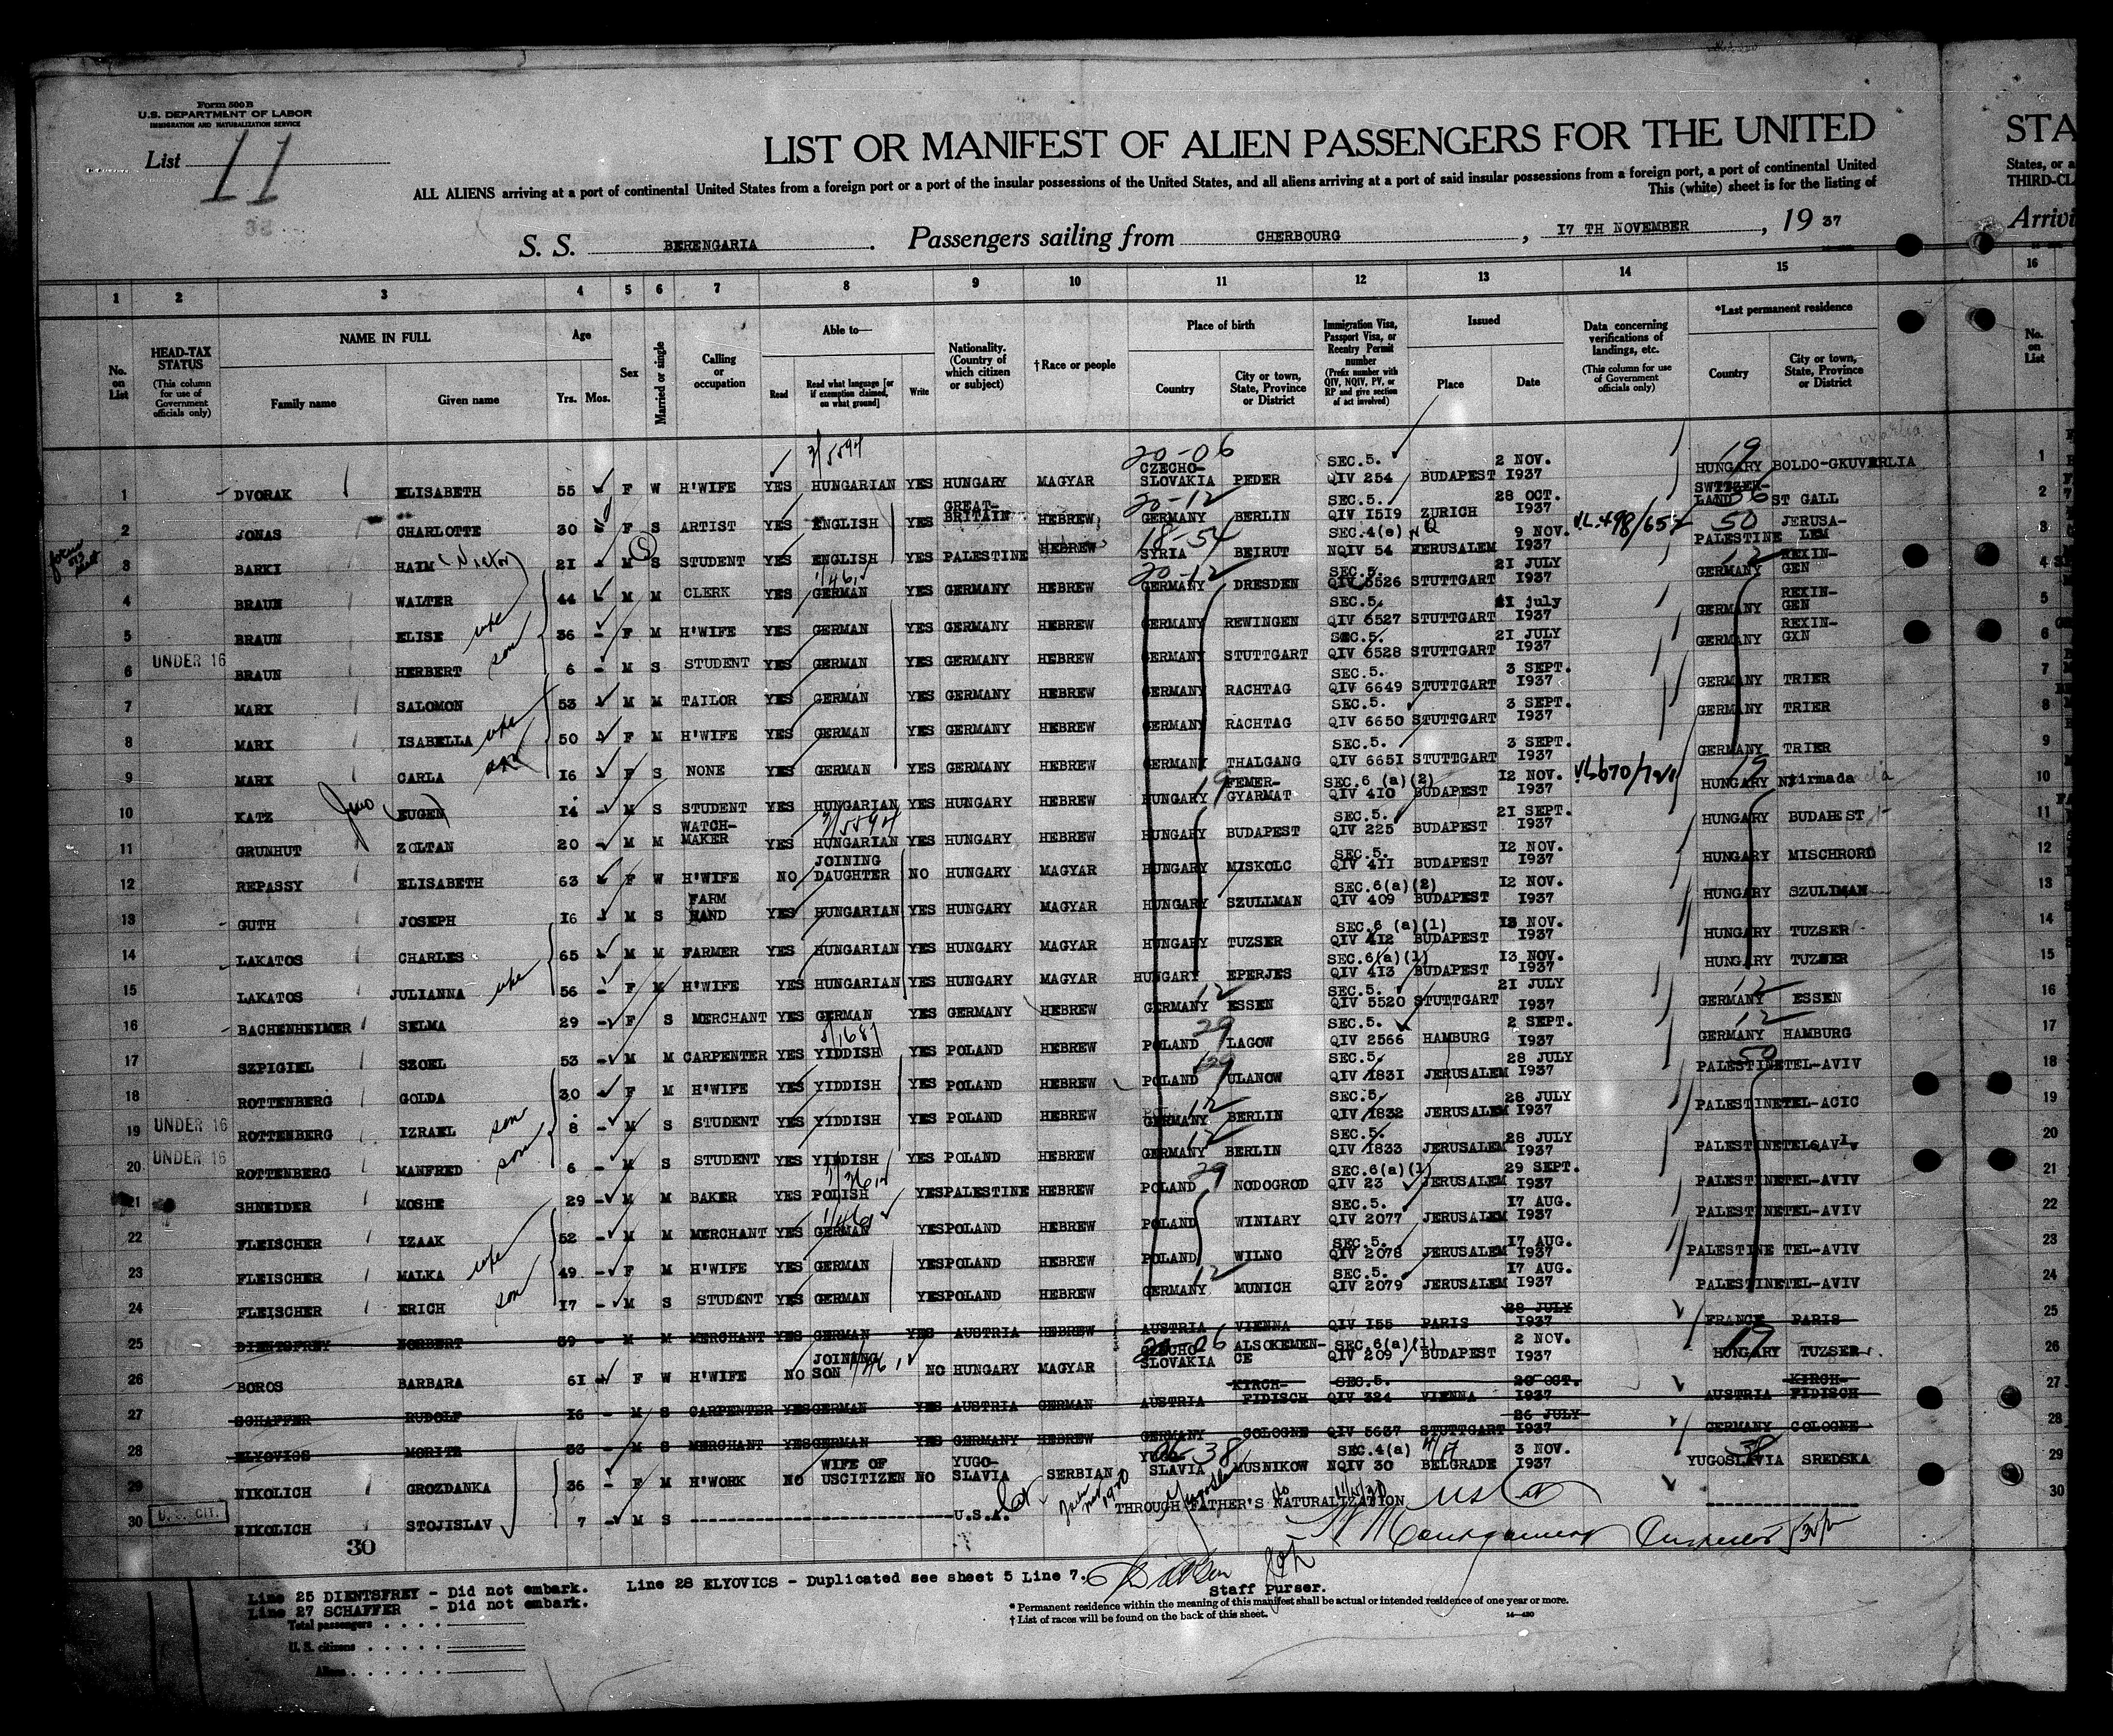 Form 500 B
U.S. DEPARTMENT OF LABOR
IMMIGRATION AND NATURALIZATION SERVICE
List 11
LIST OR MANIFEST OF ALIEN PASSENGERS FOR THE UNITED
STA
ALL ALIENS arriving at a port of continental United States from a foreign port or a port of the insular possessions of the United States, and all aliens arriving at a port of said insular possessions from a foreign port, a port of continental United
States, or a
This (white) sheet is for the listing of
THIRD-CL
S. S. BERENGARIA. Passengers sailing from CHERBOURG, 17 TH NOVEMBER, 19 37
Arrivi
1 2 3 4 5 6 7 8 9 10 11 12 13 14 15 16
No. on List
HEAD-TAX STATUS (This column for use of Government officials only)
NAME IN FULL Family name Given name
Age Yrs. Mos.
Sex
Married or single
Calling or occupation
Able to— Read Read what language [or if exemption claimed, on what ground] Write
Nationality. (Country of which citizen or subject)
†Race or people
Place of birth Country City or town, State, Province or District
Immigration Visa, Passport Visa, or Reentry Permit number (Prefix number with QIV, NQIV, PV, or RP and give section of act involved)
Issued Place Date
Data concerning verifications of landings, etc. (This column for use of Government officials only)
*Last permanent residence Country City or town, State, Province or District
No. on List
1 DVORAK ELISABETH 55 F W H'WIFE YES HUNGARIAN YES HUNGARY MAGYAR 20-06 CZECHO-SLOVAKIA PEDER SEC.5. QIV 254 BUDAPEST 2 NOV. 1937 19 HUNGARY BOLDO-GKUVERLIA 1
2 JONAS CHARLOTTE 30 F S ARTIST YES ENGLISH YES GREAT-BRITAIN HEBREW 20-12 GERMANY BERLIN SEC.5. QIV 1519 ZURICH 28 OCT. 1937 SWITZER-LAND ST GALL 2
3 BARKI HAIM (Victor) 21 M S STUDENT YES ENGLISH YES PALESTINE HEBREW 18-54 SYRIA BEIRUT SEC.4(e) NQIV 54 JERUSALEM 9 NOV. 1937 50 PALESTINE JERUSA-LEM 3
4 BRAUN WALTER 44 M M CLERK YES GERMAN YES GERMANY HEBREW 20-12 GERMANY DRESDEN SEC.5. QIV 6526 STUTTGART 21 JULY 1937 12 GERMANY REXIN-GEN 4
5 BRAUN ELISE wife 36 - F M H'WIFE YES GERMAN YES GERMANY HEBREW GERMANY REWINGEN SEC.5. QIV 6527 STUTTGART 21 july 1937 GERMANY REXIN-GEN 5
6 UNDER 16 BRAUN HERBERT son 6 - M S STUDENT YES GERMAN YES GERMANY HEBREW GERMANY STUTTGART SEC.5. QIV 6528 STUTTGART 21 JULY 1937 GERMANY REXIN-GXN 6
7 MARX SALOMON 53 M M TAILOR YES GERMAN YES GERMANY HEBREW GERMANY RACHTAG SEC.5. QIV 6649 STUTTGART 3 SEPT. 1937 GERMANY TRIER 7
8 MARX ISABELLA wife 50 F M H'WIFE YES GERMAN YES GERMANY HEBREW GERMANY RACHTAG SEC.5. QIV 6650 STUTTGART 3 SEPT. 1937 GERMANY TRIER 8
9 MARX CARLA 16 F S NONE YES GERMAN YES GERMANY HEBREW GERMANY THALGANG SEC.5. QIV 6651 STUTTGART 3 SEPT. 1937 GERMANY TRIER 9
10 KATZ Jeno (EUGEN) 14 - M S STUDENT YES HUNGARIAN YES HUNGARY HEBREW HUNGARY 19 FEHER-GYARMAT SEC.6 (a)(2) QIV 410 BUDAPEST 12 NOV. 1937 19 HUNGARY 10
11 GRUNHUT ZOLTAN 20 - M M WATCH-MAKER YES HUNGARIAN YES HUNGARY HEBREW HUNGARY BUDAPEST SEC.5. QIV 225 BUDAPEST 21 SEPT. 1937 HUNGARY BUDAPEST 11
12 REPASSY ELISABETH 63 F W H'WIFE NO JOINING DAUGHTER NO HUNGARY MAGYAR HUNGARY MISKOLC SEC.5. QIV 411 BUDAPEST 12 NOV. 1937 HUNGARY MISCHRORD 12
13 GUTH JOSEPH 16 M S FARM HAND YES HUNGARIAN YES HUNGARY MAGYAR HUNGARY SZULLMAN SEC.6(a)(2) QIV 409 BUDAPEST 12 NOV. 1937 HUNGARY SZULIMAN 13
14 LAKATOS CHARLES 65 M M FARMER YES HUNGARIAN YES HUNGARY MAGYAR HUNGARY TUZSER SEC.6 (a)(1) QIV 412 BUDAPEST 13 NOV. 1937 HUNGARY TUZSER 14
15 LAKATOS JULIANNA wife 56 - F M H'WIFE YES HUNGARIAN YES HUNGARY MAGYAR HUNGARY EPERJES SEC.6(a)(1) QIV 413 BUDAPEST 13 NOV. 1937 HUNGARY TUZSER 15
16 BACHENHEIMER SELMA 29 - F S MERCHANT YES GERMAN YES GERMANY HEBREW 12 GERMANY ESSEN SEC.5. QIV 5520 STUTTGART 21 JULY 1937 12 GERMANY ESSEN 16
17 SZPIGIEL SZOEL 53 - M M CARPENTER YES YIDDISH YES POLAND HEBREW 29 POLAND LAGOW SEC.5. QIV 2566 HAMBURG 2 SEPT. 1937 12 GERMANY HAMBURG 17
18 ROTTENBERG GOLDA 30 - F M H'WIFE YES YIDDISH YES POLAND HEBREW POLAND ULANOW SEC.5. QIV 1831 JERUSALEM 28 JULY 1937 50 PALESTINE TEL-AVIV 18
19 UNDER 16 ROTTENBERG IZRAEL son 8 - M S STUDENT YES YIDDISH YES POLAND HEBREW 12 GERMANY BERLIN SEC.5. QIV 1832 JERUSALEM 28 JULY 1937 PALESTINE TEL-ACIC 19
20 UNDER 16 ROTTENBERG MANFRED son 6 - M S STUDENT YES YIDDISH YES POLAND HEBREW 12 GERMANY BERLIN SEC.5. QIV 1833 JERUSALEM 28 JULY 1937 PALESTINE 20
21 SHNEIDER MOSHE 29 - M M BAKER YES POLISH YES PALESTINE HEBREW 29 POLAND NODOGROD SEC.6(a)(1) QIV 23 JERUSALEM 29 SEPT. 1937 PALESTINE TEL-AVIV 21
22 FLEISCHER IZAAK 52 - M M MERCHANT YES GERMAN YES POLAND HEBREW POLAND WINIARY SEC.5. QIV 2077 JERUSALEM 17 AUG. 1937 PALESTINE TEL-AVIV 22
23 FLEISCHER MALKA wife 49 - F M H'WIFE YES GERMAN YES POLAND HEBREW POLAND WILNO SEC.5. QIV 2078 JERUSALEM 17 AUG. 1937 PALESTINE TEL-AVIV 23
24 FLEISCHER ERICH son 17 - M S STUDENT YES GERMAN YES POLAND HEBREW 12 GERMANY MUNICH SEC.5. QIV 2079 JERUSALEM 17 AUG. 1937 PALESTINE TEL-AVIV 24
25 DIENTSFREY NORBERT 39 - M M MERCHANT YES GERMAN YES AUSTRIA HEBREW AUSTRIA VIENNA QIV 155 PARIS 28 JULY FRANCE PARIS 25
26 BOROS BARBARA 61 F W H'WIFE NO JOINING SON NO HUNGARY MAGYAR CZECHO-SLOVAKIA ALSOKEMEN-CE SEC.6(a)(1) QIV 209 BUDAPEST 2 NOV. 1937 19 HUNGARY TUZSER 26
27 SCHAFFER RUDOLF 16 - M S CARPENTER YES GERMAN YES AUSTRIA GERMAN AUSTRIA KIRCH-FIDISCH SEC.5. QIV 324 VIENNA 20 OCT. 1937 AUSTRIA KIRCH-FIDISCH 27
28 ELYOVICS MORITZ 33 - M S MERCHANT YES GERMAN YES GERMANY HEBREW GERMANY COLOGNE QIV 5637 STUTTGART 26 JULY 1937 GERMANY COLOGNE 28
29 NIKOLICH GROZDANKA 36 - F M H'WORK NO WIFE OF USCITIZEN NO YUGO-SLAVIA SERBIAN YUGO-SLAVIA MUSNIKOW SEC.4(a) NQIV 30 BELGRADE 3 NOV. 1937 YUGOSLAVIA SREDSKA 29
30 U.S. CIT. NIKOLICH STOJISLAV 7 - M S U.S.A. THROUGH FATHER'S NATURALIZATION 30
30
Line 25 DIENTSFREY - Did not embark.
Line 28 ELYOVICS - Duplicated see sheet 5 Line 7.
Line 27 SCHAFFER - Did not embark.
Staff Purser.
Total passengers
U. S. citizens
Aliens
* Permanent residence within the meaning of this manifest shall be actual or intended residence of one year or more.
† List of races will be found on the back of this sheet.
14—430